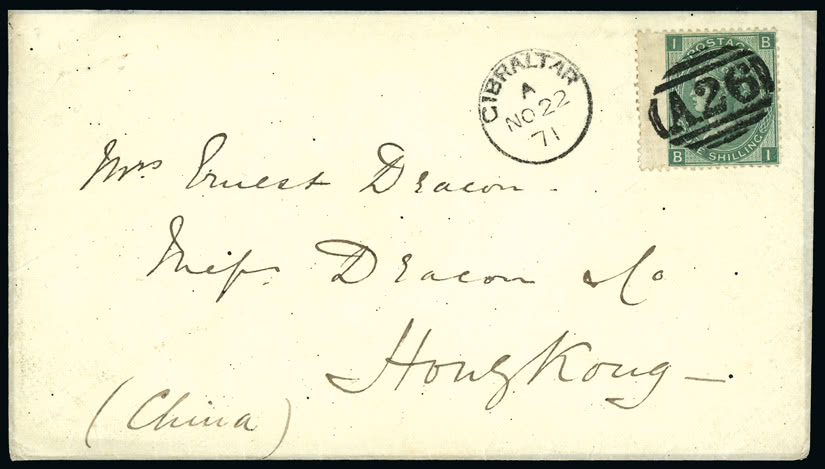 I B
POSTAG
A26
E SHILLING
B I
GIBRALTAR
A
NO 22
71
Mrs Ernest Deacon.
Messrs Deacon & Co
Hong Kong
(China)